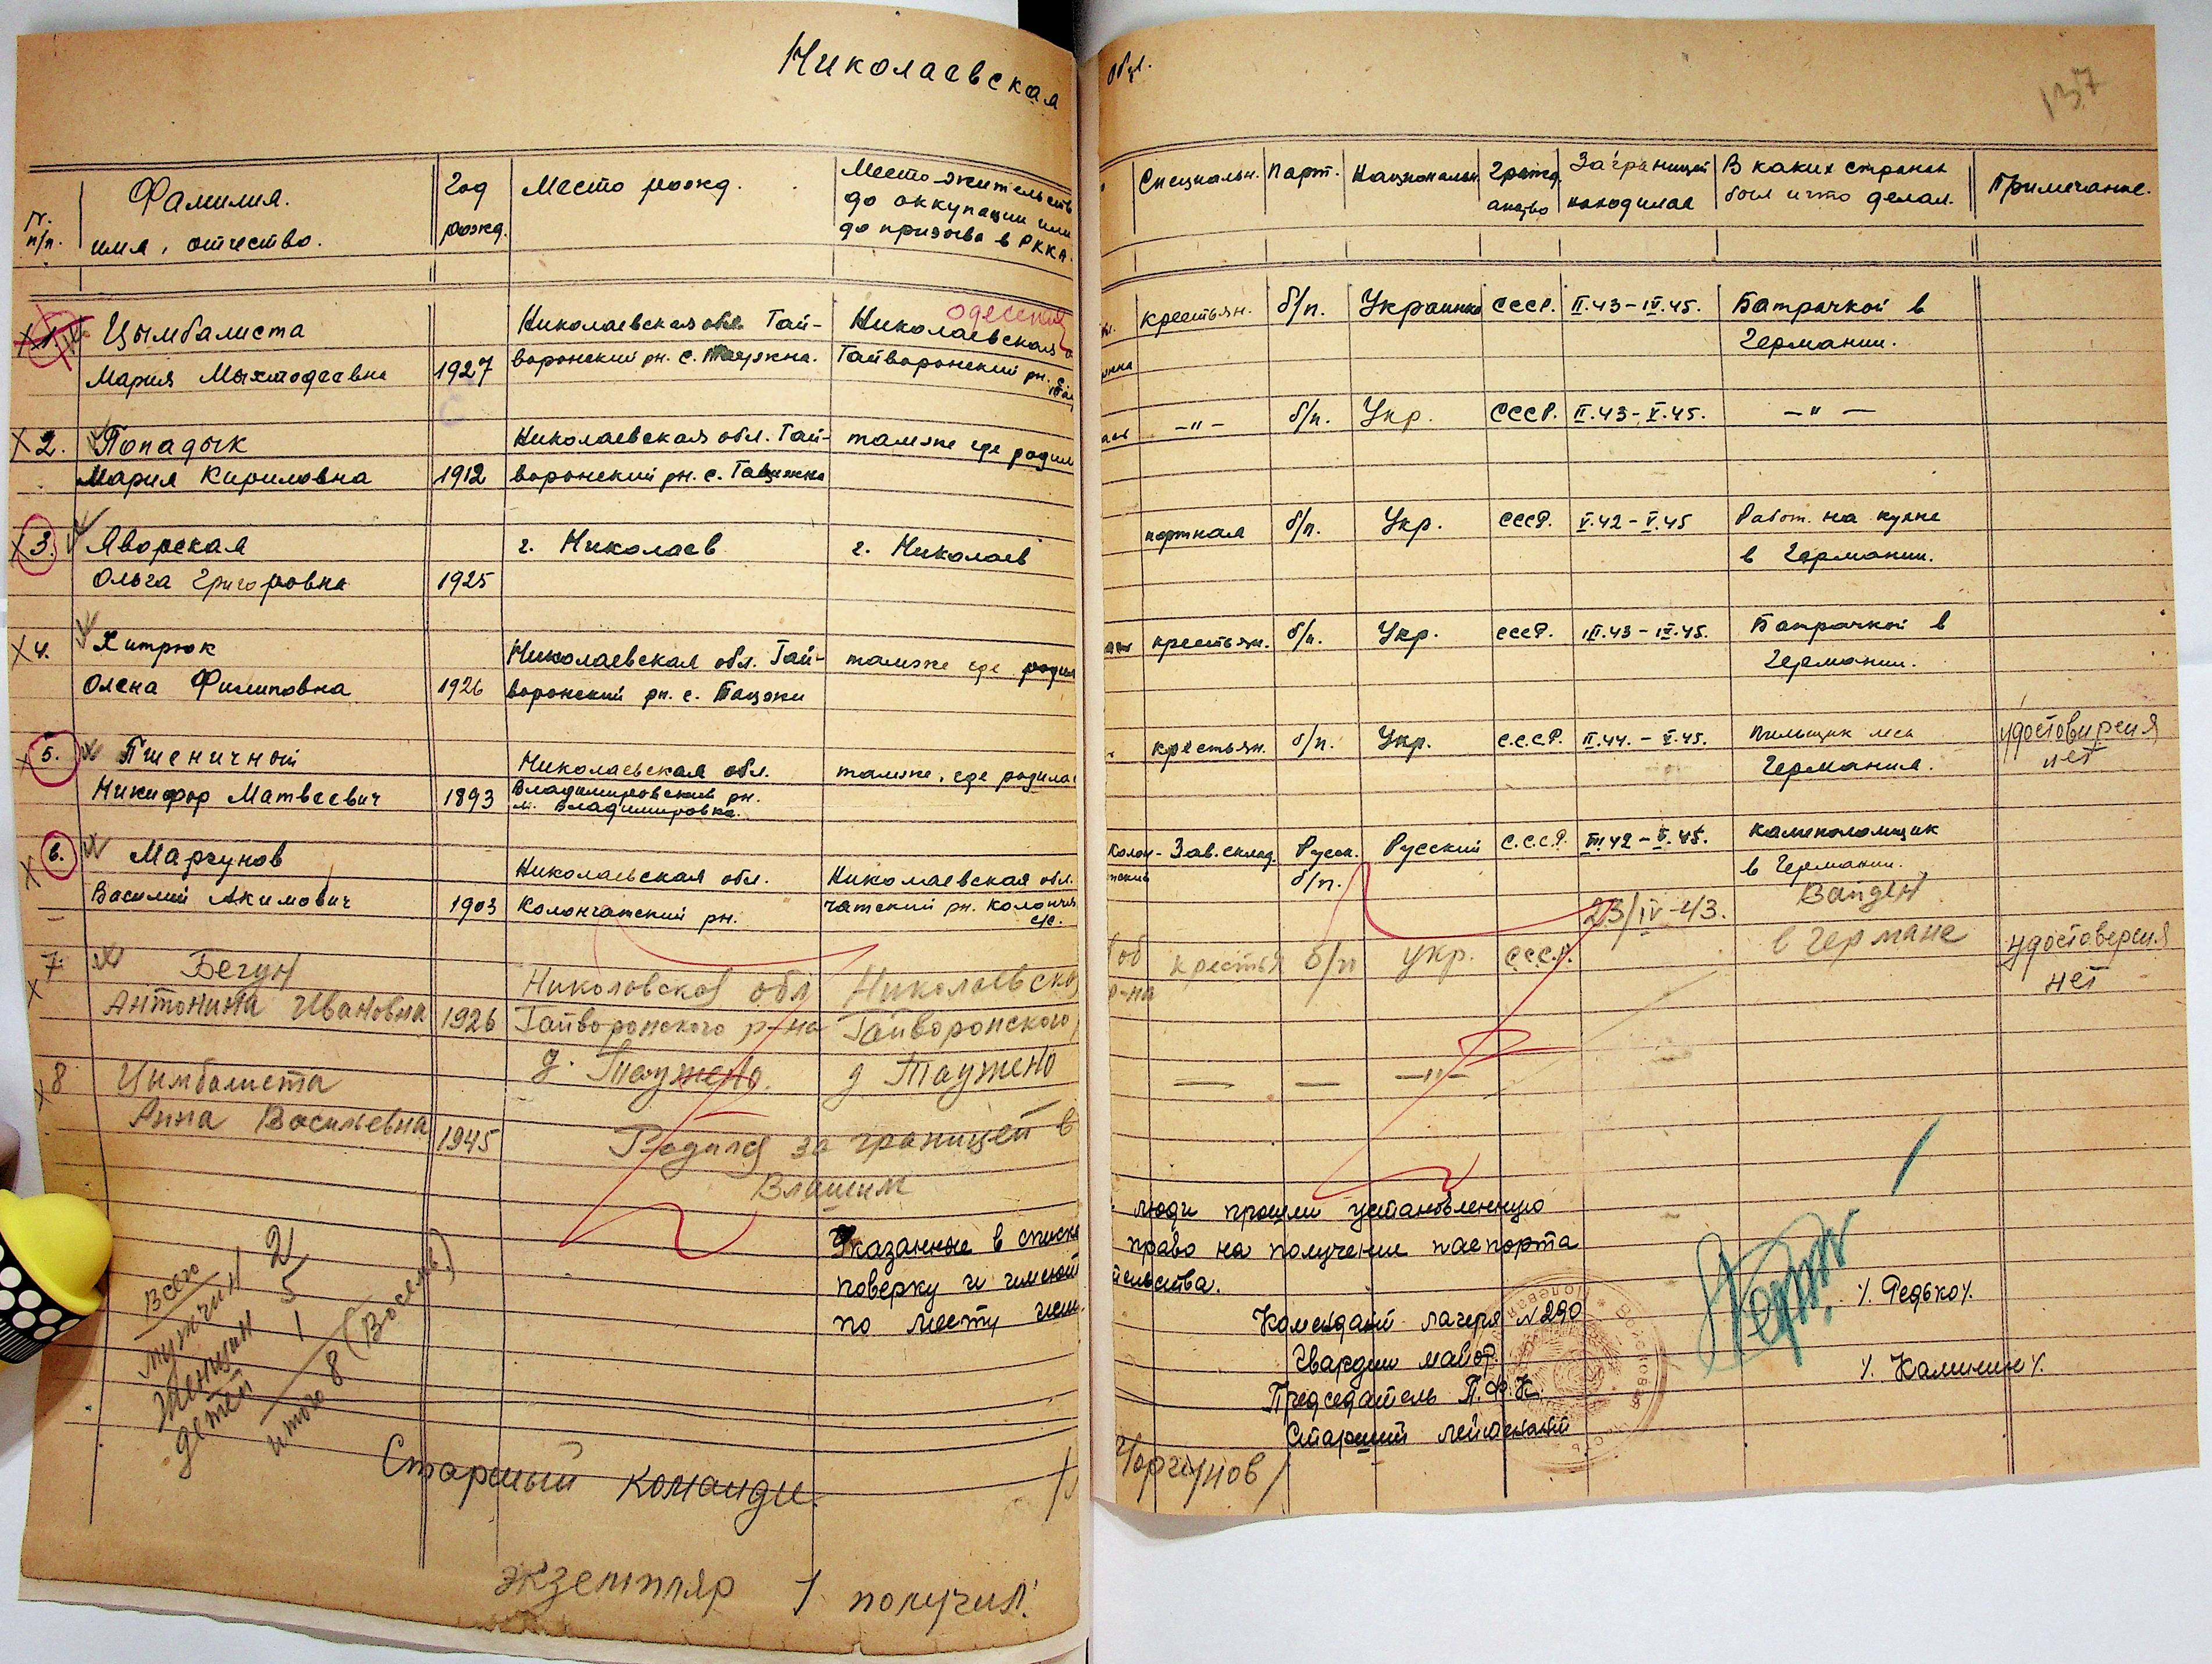 Николаевская обл.
137
№ п/п.
Фамилия.
имя, отчество.
Год
рожд.
Место рожд.
Место жительств
до оккупации или
до призыва в РККА.
Специальн.
Парт.
Национальн.
Гражд
анство
За границей
находился
В каких странах
был и что делал.
Примечание.
Цымбалиста
Мария
1927
Николаевская обл. Гай-
воронский рн. с.
одесская
Николаевская о
Гайворонский рн. с.
крестьян.
б/п.
Украинка
СССР.
II.43-IV.45.
Батрачкой в
Германии.
2.
Попадык
Мария Кириловна
1912
Николаевская обл. Гай-
воронский рн. с.
тамже где родил
-"-
б/п.
Укр.
СССР.
II.43-V.45.
-"-
3.
Яворская
Ольга Григоровна
1925
г. Николаев
г. Николаев
портная
б/п.
Укр.
СССР.
V.42-V.45
Работ. на кухне
в Германии.
4.
Хитрюк
Олена Филиповна
1926
Николаевская обл. Гай-
воронский рн. с.
тамже где родил
крестьян.
б/п.
Укр.
СССР.
III.43-IV.45.
Батрачкой в
Германии.
5.
Пшеничной
Никифор Матвеевич
1893
Николаевская обл.
Владимировский рн.
м. Владимировка.
тамже, где родилас
крестьян.
б/п.
Укр.
С.С.С.Р.
II.44.-V.45.
пильщик леса
Германия.
удостовирения
нет
6.
Маргунов
Василий Акимович
1903
Николаевская обл.
Колончатский рн.
Николаевская обл.
чатский рн. Колонча
с/с.
Колон-
Зав. склад.
Русск.
б/п.
Русский
С.С.С.Р.
III.42-V.45.
каменоломщик
в Германии.
7
Бегун
Антонина Ивановна
1926
Николовской обл
Гайворонского р-на
д. Таужено.
Николаевской
Гайворонского
д Таужено
р-на
крестья
б/п
укр.
СССР.
23/IV-43.
в Германе
удостоверения
нет
8
Цимбалиста
Анна Васильевна
1945
Родился за границей в
-"-
Указанные в списке
люди прошли установленную
поверку и имеют
право на получение паспорта
по месту жит
тельства.
Всего
мужчин 2
женщин 5
детей 1
итого 8 (Восемь)
Комендант лагеря №290
Гвардии майор.
/. Редько/.
Председатель П.Ф.К.
Старший лейтенант
/. Калинин/.
Старшый команди.
/Маргунов/
экземпляр 1 получил.